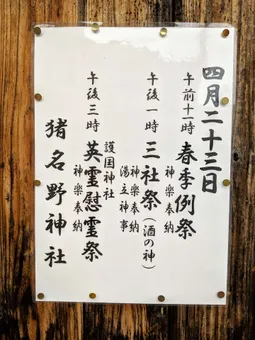 四月二十三日
午前十一時 春季例祭
神楽奉納
午後一時 三社祭（酒の神）
神楽奉納
湯立神事
護国神社
午後三時 英霊慰霊祭
神楽奉納
猪名野神社